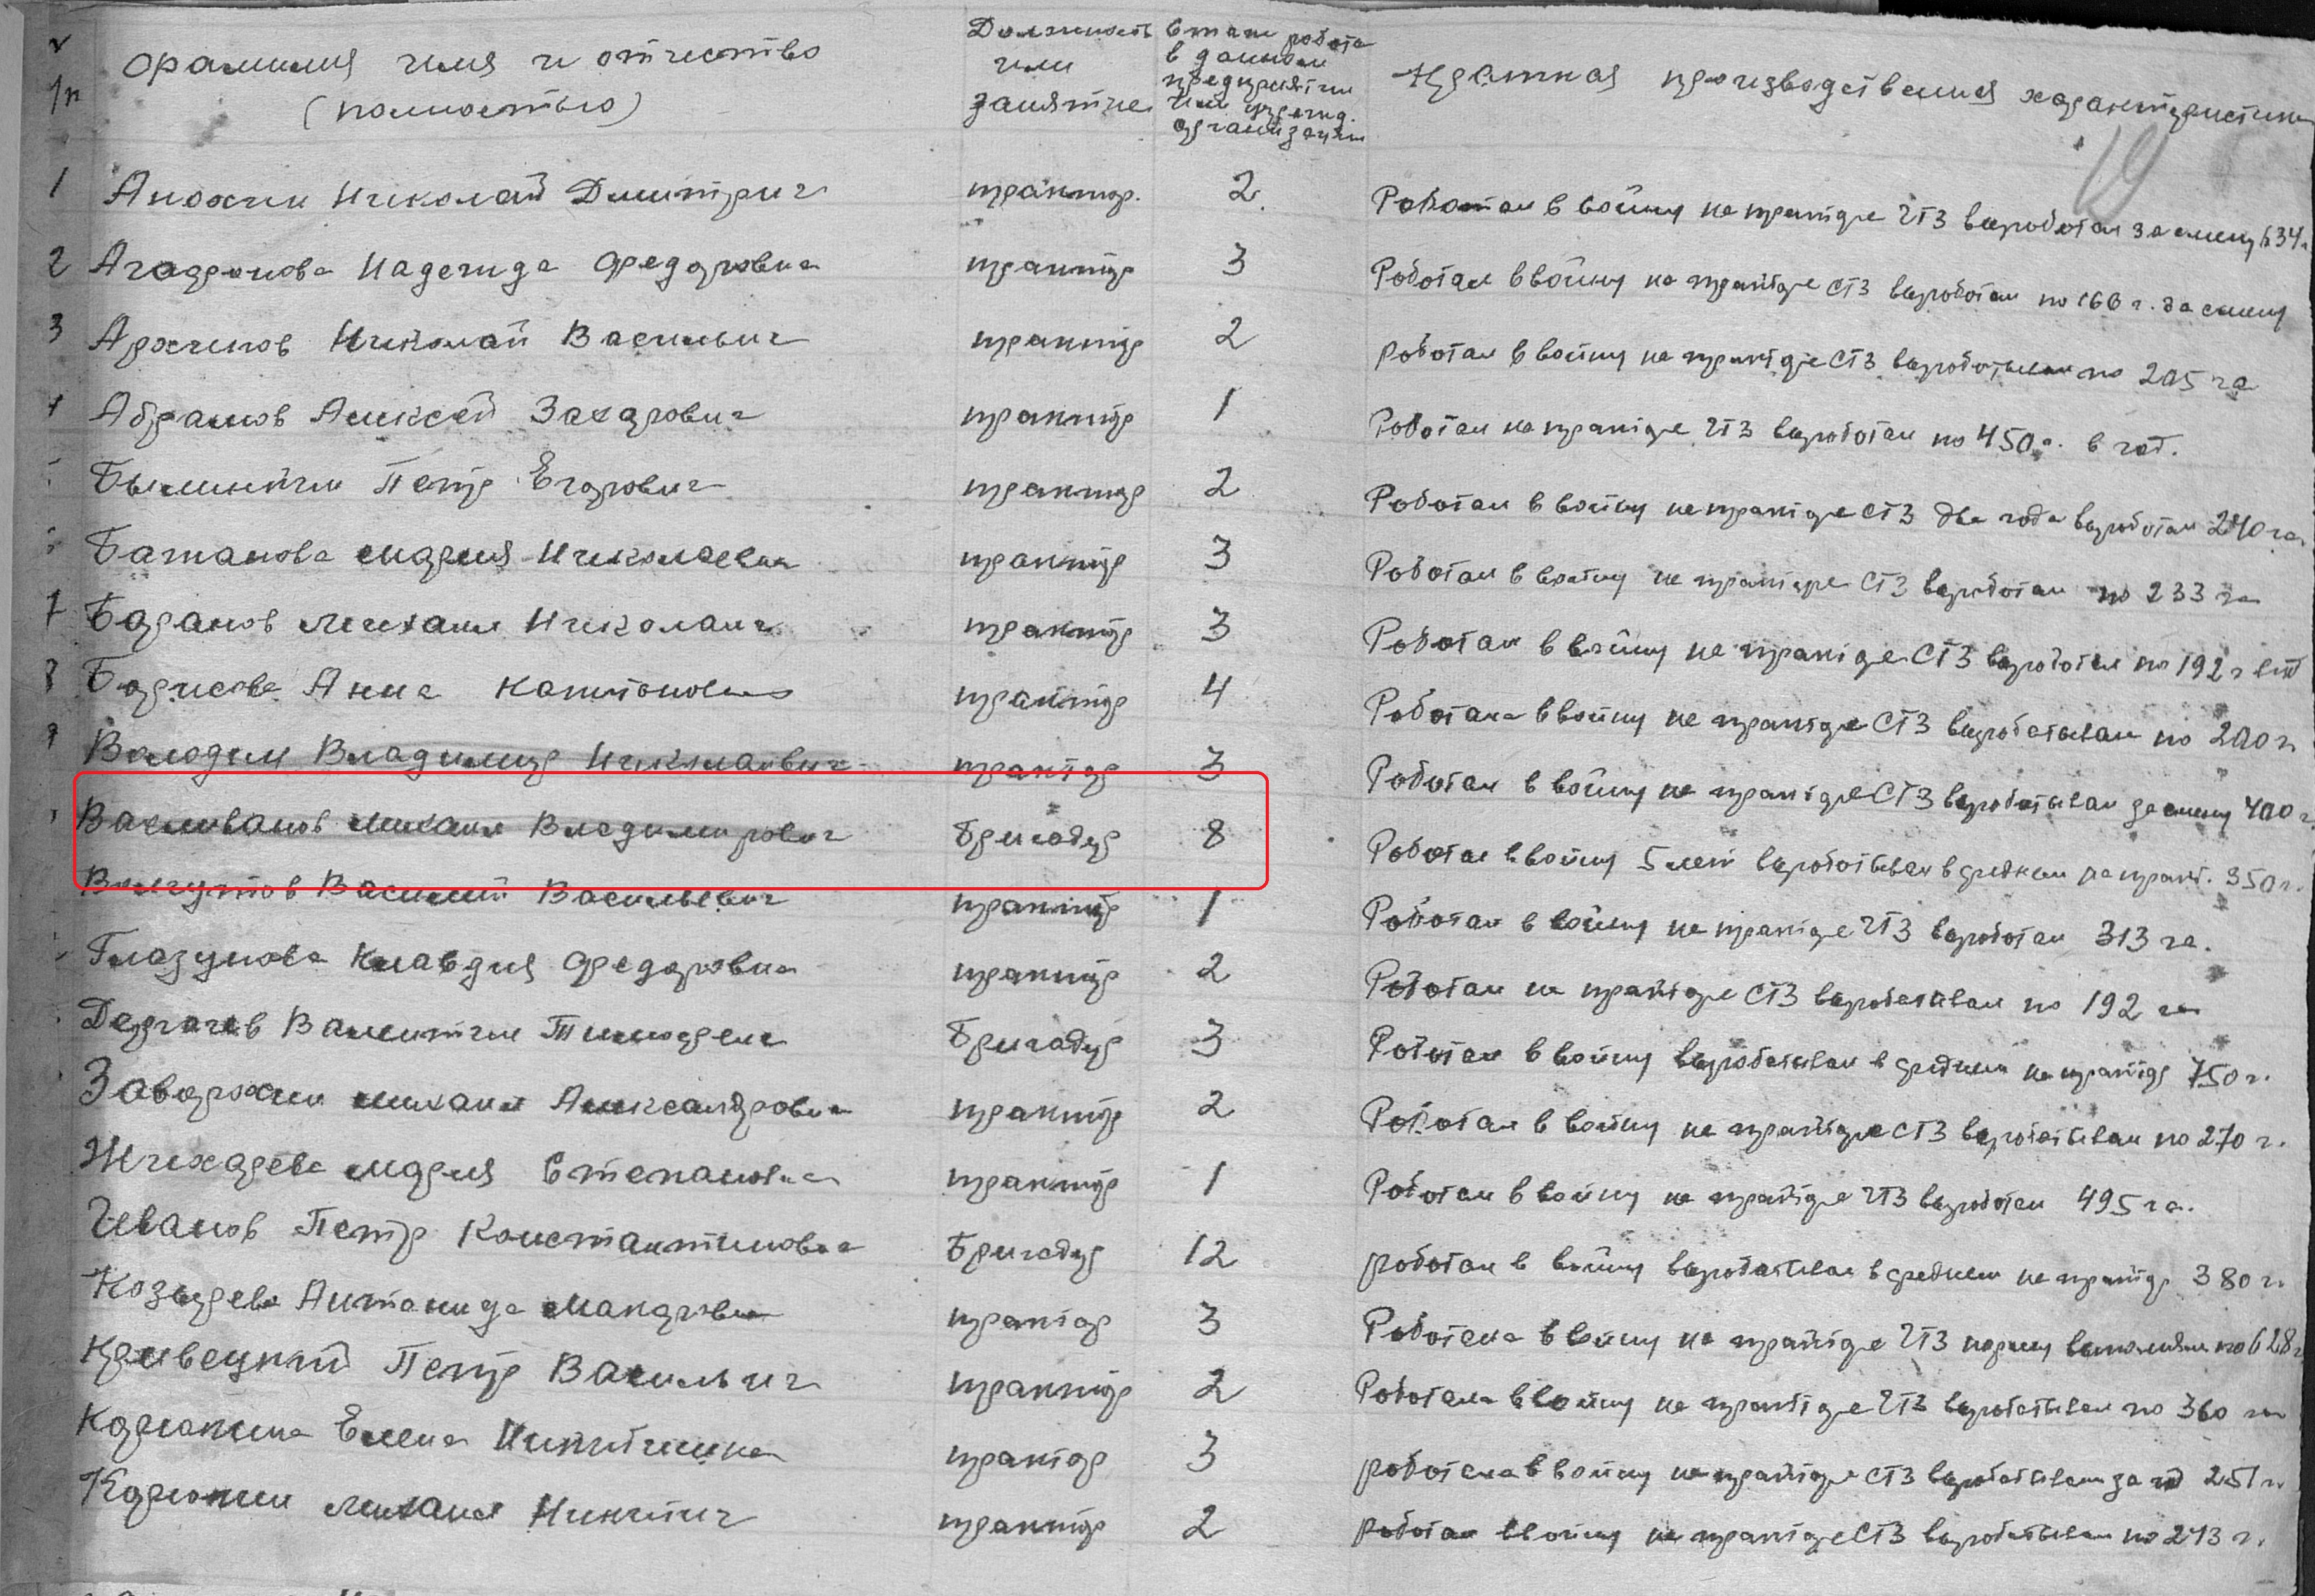 Фамилия имя и отчество (полностью) Должность или занятие Стаж работы в данном предприятии или учрежд. организации Краткая производственная характеристика
19
1 Анохин Николай Дмитрич трактор. 2. Работал в войну на тракторе ЧТЗ выработал за смену 634 г
2 Агафонова Надежда Федоровна трактор 3 Работал в войну на тракторе СТЗ выработал по 166 г. за смену
3 Архипов Николай Васильич трактор 2 работал в войну на тракторе СТЗ выработывал по 205 га
4 Абрамов Алексей Захарович трактор 1 Работал на тракторе ЧТЗ выработал по 450 г. в год.
Петр Егорович трактор 2 Работал в войну на тракторе СТЗ два года выработал 240 га.
Батанова Мария Николаевна трактор 3 Работал в войну на тракторе СТЗ выработал по 233 га
7 Баранов Михаил Николаич трактор 3 Работал в войну на тракторе СТЗ выработал по 192 г
8 Борисова Анна Капитоновна трактор 4 Работала в войну на тракторе СТЗ выработывал по 200 г.
9 Володин Владимир Николаевич трактор 3 Работал в войну на тракторе СТЗ выработывал за смену 400 г.
Михаил Владимирович Бригадир 8 Работал в войну 5 лет выработывал в среднем на тракт. 350 г.
Василий Васильевич трактор 1 Работал в войну на тракторе ЧТЗ выработал 313 га.
Глазунова Клавдия Федоровна трактор 2 Работал на тракторе СТЗ выработывал по 192 га
Дергачев Валентин Бригадир 3 Работал в войну выработывал в среднем на трактор 750 г.
Заворохин Михаил Александрович трактор 2 Работал в войну на тракторе СТЗ выработывал по 270 г.
Жихарева Мария Степановна трактор 1 Работал в войну на тракторе ЧТЗ выработал 495 га.
Иванов Петр Константинович Бригадир 12 работал в войну выработывал в среднем на трактор 380 г.
Козырева Антанида Макаровна трактор 3 Работала в войну на тракторе ЧТЗ норму выполняла по 628 г
Кривецкий Петр Васильич трактор 2 Работала в войну на тракторе ЧТЗ выработывал по 360 га
Корюкина Елена Никитична трактор 3 работала в войну на тракторе СТЗ выработывал за год 251 г.
Корюкин Михаил Никитич трактор 2 работал в войну на тракторе СТЗ выработывал по 243 г.